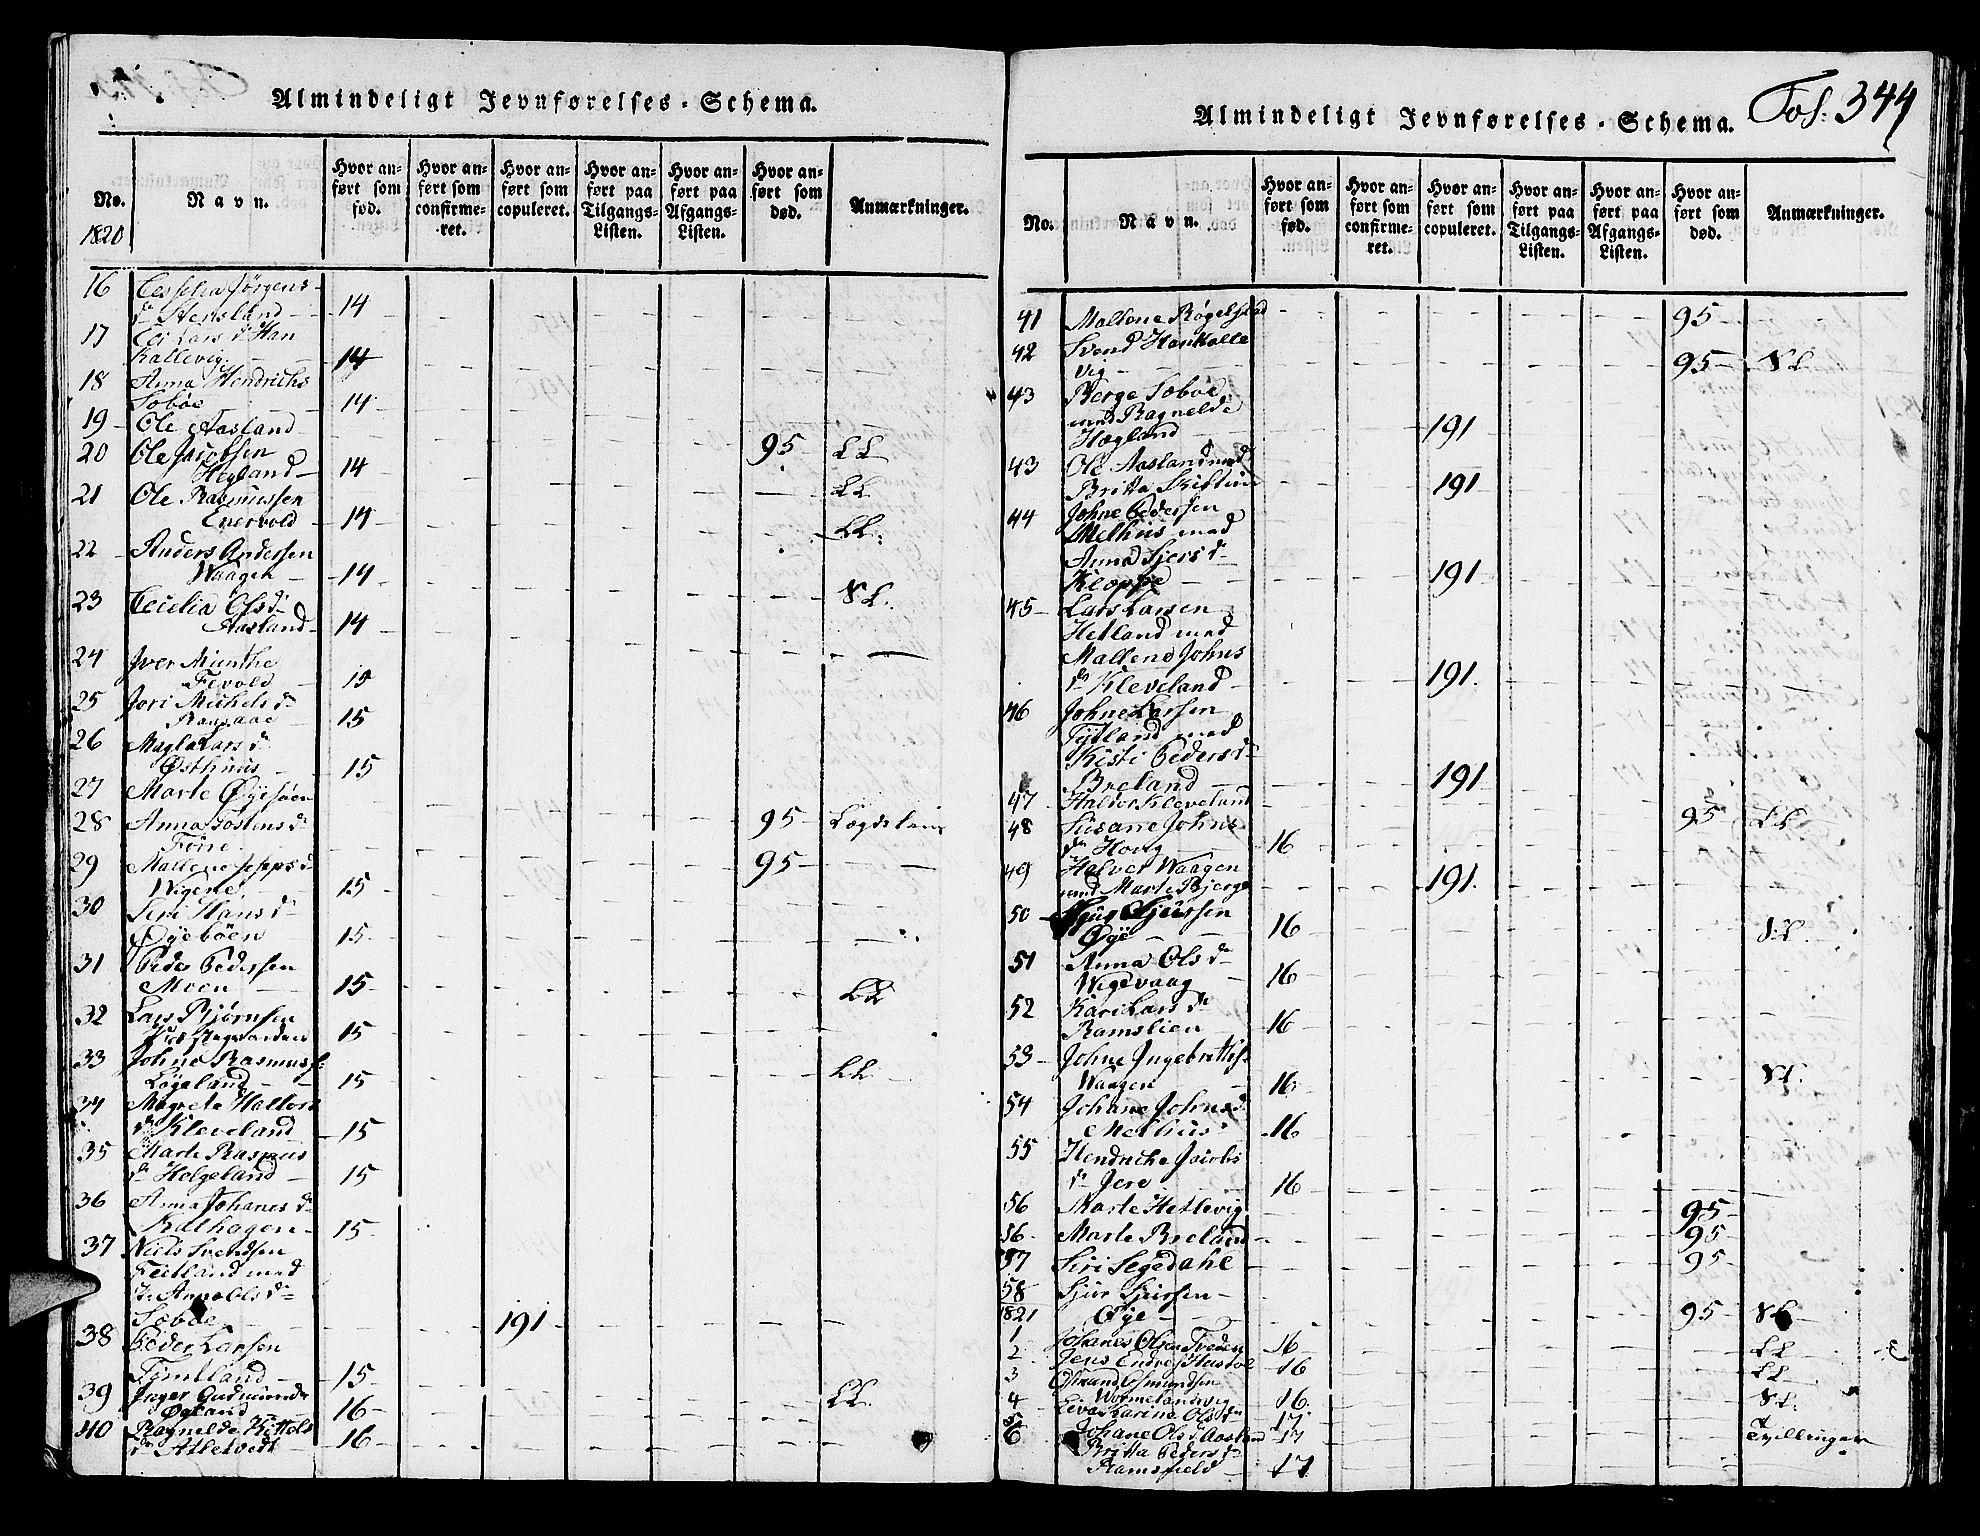 Almindeligt Jevnførelses-Schema.
No. Navn. Hvor anført som fød. Hvor anført som confirmeret. Hvor anført som copuleret. Hvor anført paa Tilgangs-Listen. Hvor anført paa Afgangs-Listen. Hvor anført som død. Anmærkninger.
1820
16 Jørgens-
14
17 Lars d. Han
Kallevig 14
18 Anna Hendrichs
Søbøe 14
19 Ole Aasland 95 LL
20 Ole Jacobsen
Hegland 14 LL
21 Ole Rasmussen
Enervold 14 LL.
22 Anders Andersen
Waagen 14 SL.
23 Cecilia Ols d.
Aasland 14
24 Iver Munthe
Fevold 15
25 Jori Michels d.
15
26 Magla Lars d.
Østhuus 15
27 Marte Øyesøen 95
28 Anna Tostens d.
95
29 Mallene Jepps d.
Wigene 15
30 Seri Hans d.
Øyebøen 15
31 Peder Pedersen
Moen 15 LL
32 Lars Bjørnsen
15
33 Johne Rasmuss.
Løgeland 15 LL
34 Magrete Hallors
d. Kleveland 15
35 Marte Rasmus
d. Helgeland 15
36 Anna Johanes d.
Kalhagen 15
37 Niels Svendsen
Feetland med
Anna Ols d.
Søbøe 191
38 Peder Larsen
Tytland 15
39 Inger Gudmunds
Øgland 16 LL.
40 Ragnelde Kittels
d. Atletvedt 16
Almindeligt Jevnførelses-Schema.
Fol: 344
No. Navn. Hvor anført som fød. Hvor anført som confirmeret. Hvor anført som copuleret. Hvor anført paa Tilgangs-Listen. Hvor anført paa Afgangs-Listen. Hvor anført som død. Anmærkninger.
41 Mallene Røgelstad 95
42 Svend Hankalle
vig 95 SL
43 Berge Søbøe
med Ragnelde
Hægland 191
43 Ole Aasland med
Britta 191
44 Johne Pedersen
Melhus med
Anna Sjers d.
Kloppe 191
45 Lars Larsen
Hetland med
Mallene Johns
d. Kleveland 191
46 Johne Larsen
Tytland med
Kisti Peders d.
Breland 191
47 Halvor Kleveland 95 LL
48 Susane Johns
d. Hovig 16
49 Halver Waagen
med Marte Bjerge 191.
50 Sjursen
Øye 16 SL
51 Anna Ols d.
Wigevaag 16
52 Kari Lars d.
Ramslien 16
53 Johne Ingebrethss.
Waagen 16 SL.
54 Johane Johns d.
Melhus 16
55 Hendriche Jacobs
d. Jere 16
56 Marte Hetlevig 95
56 Marte Breland 95
57 Siri Segedahl 95
58 Sjur Sjursen
1821 Øye 95 SL
1 Johanes Olsen Tveden 16 LL
2 Jens Endres. Hustøe 16 LL
3 Osmundsen
16. SL.
4 Eva Karine Ols d. 17
5 Johane Ols d. Aasland 17 Tvillinger
6 Britta Peders d.
Ramsfield 17